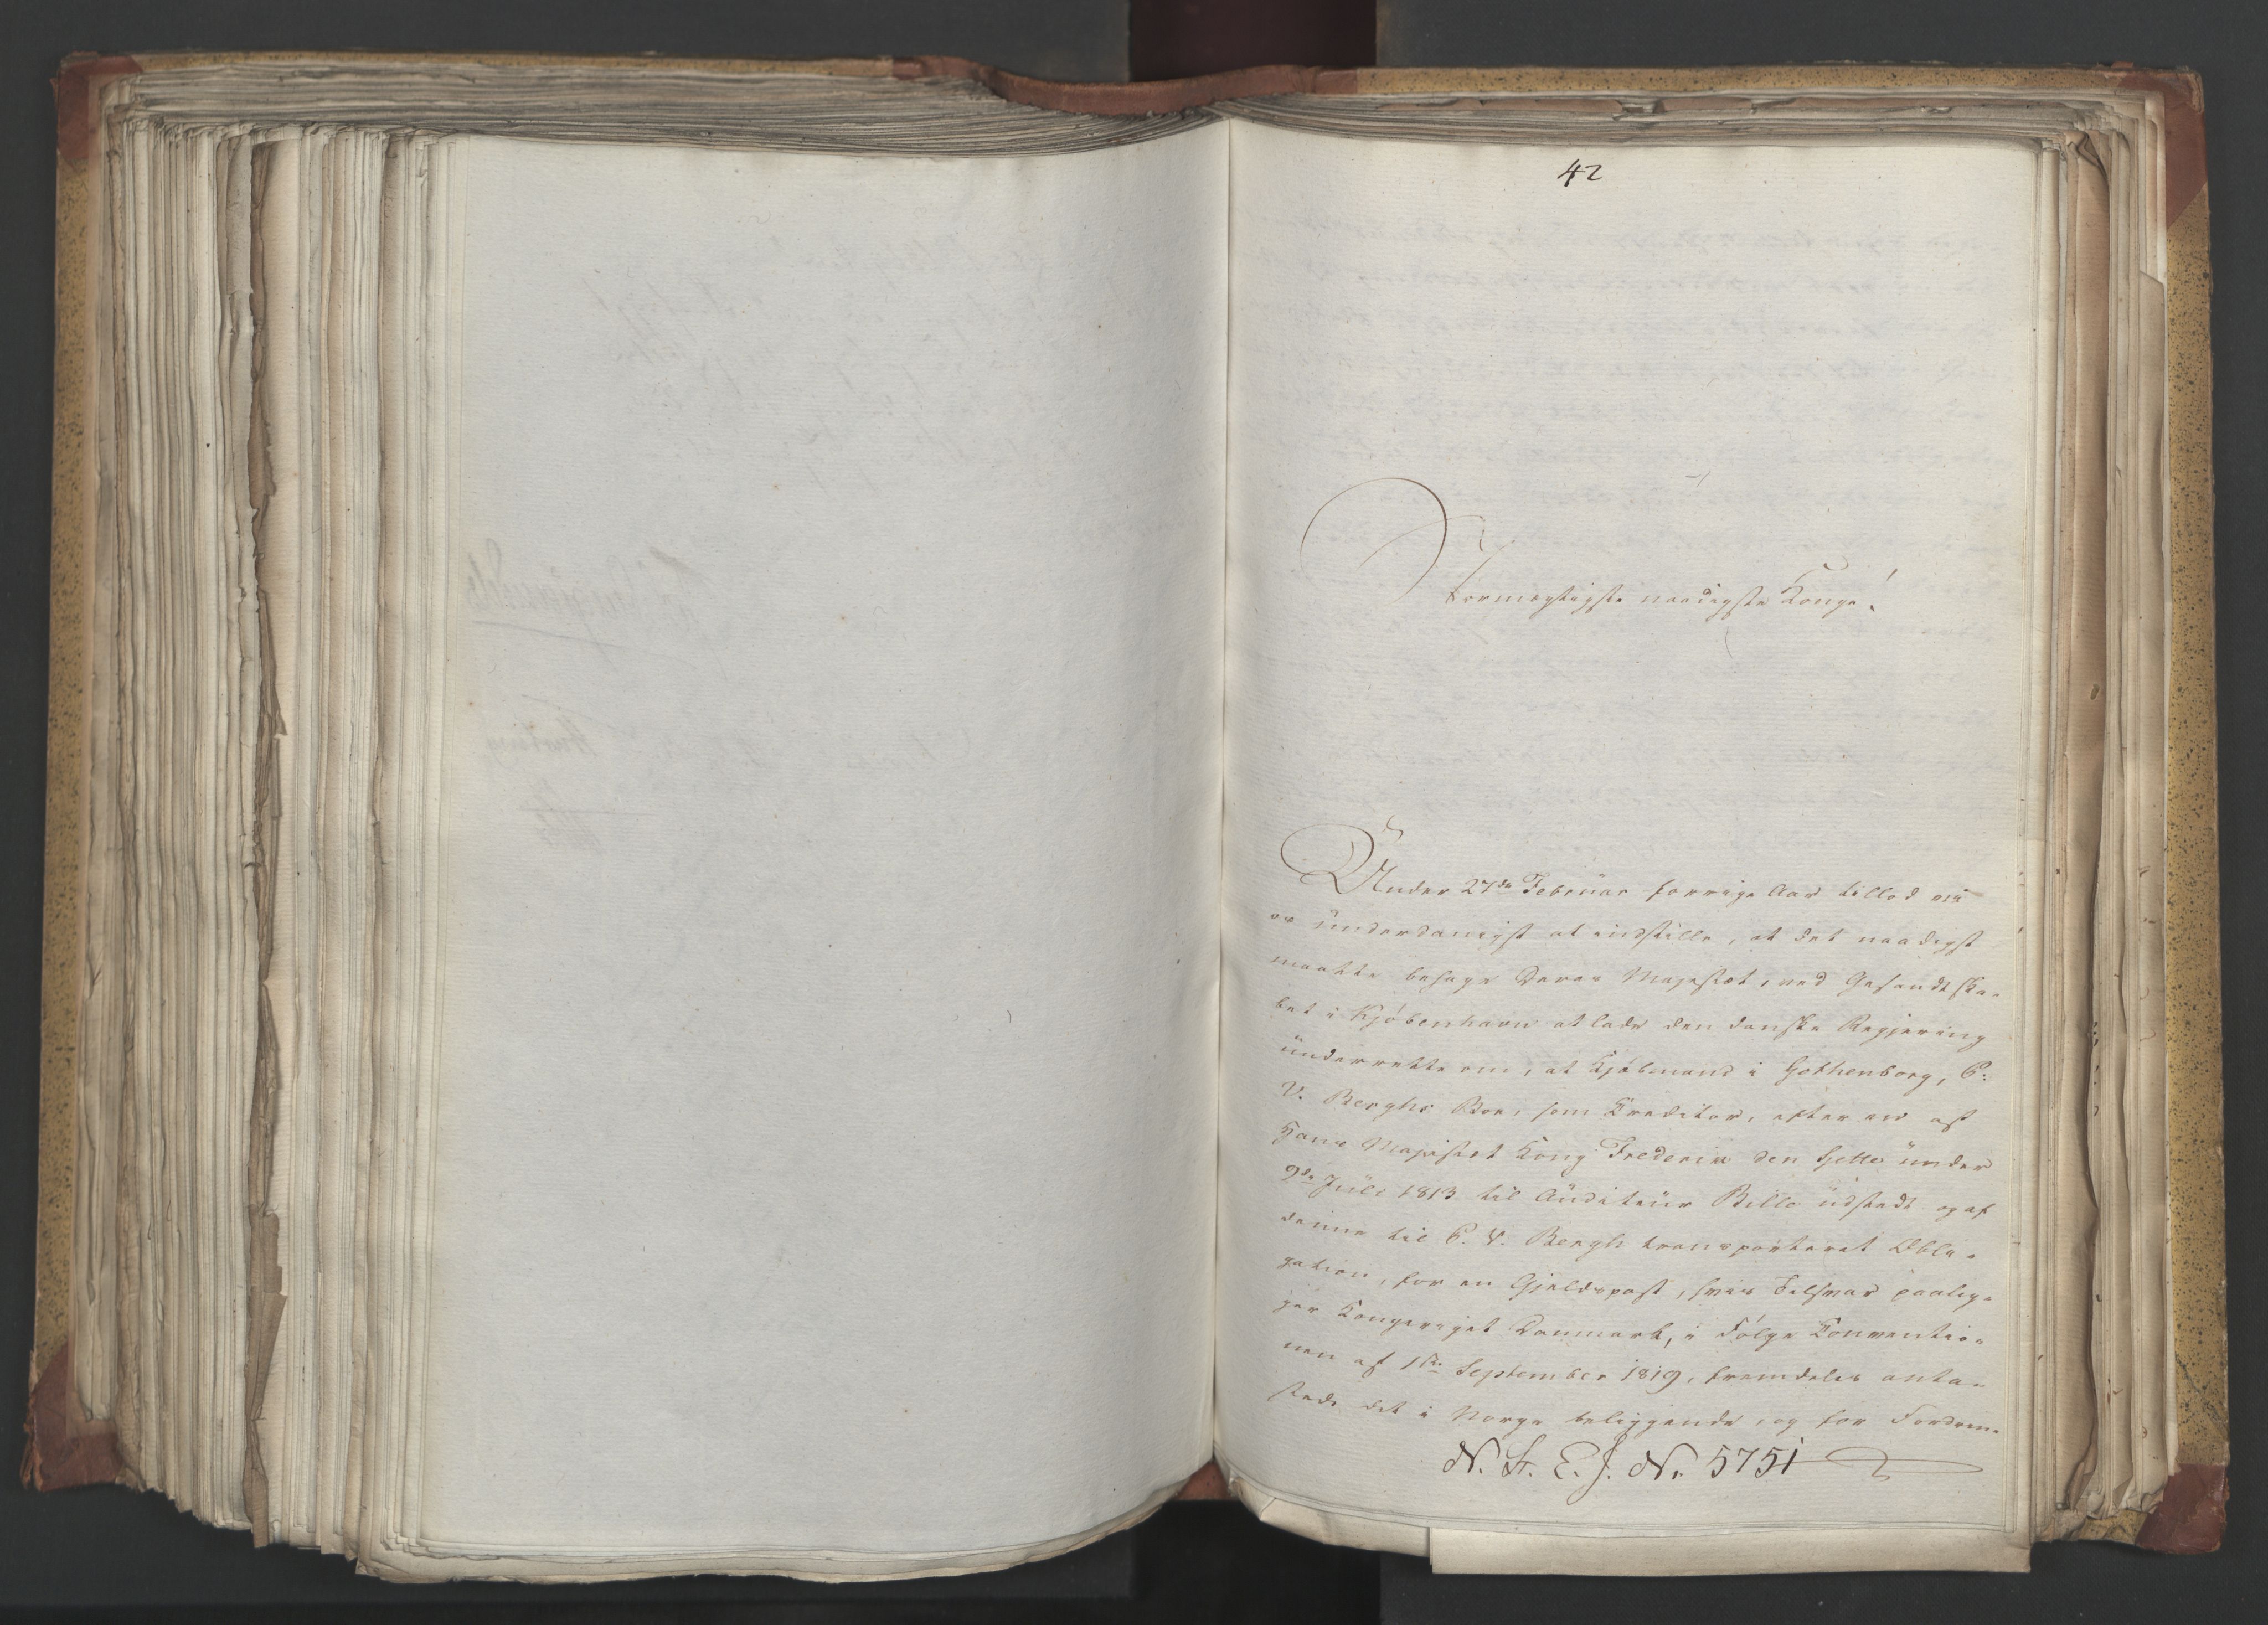 42
Stormægtigste naadigste Konge!
Under 27de Februar forrige Aar tillod vi
os underdanigst at indstille, at det naadigst
maatte behage Deres Majestæt, ved Gesandtska-
bet i Kjøbenhavn at lade den danske Regjering
underrette om, at Kjøbmand i Gothenborg, C:
V. Berghs Boe, som Creditor, efter en af
Hans Majestæt Kong Frederik den Sjette under
9de Juli 1813 til Auditeur Bille udstedt og af
denne til C. V. Bergh transporteret Obli-
gation, for en Gjeldspost, hvis Tilsvar paalig-
ger Kongeriget Danmark, i Følge Conventio-
nen af 1ste September 1819, fremdeles anta-
stede det i Norge beliggende, og for Fordrin-
N. St. E. J. No 5751